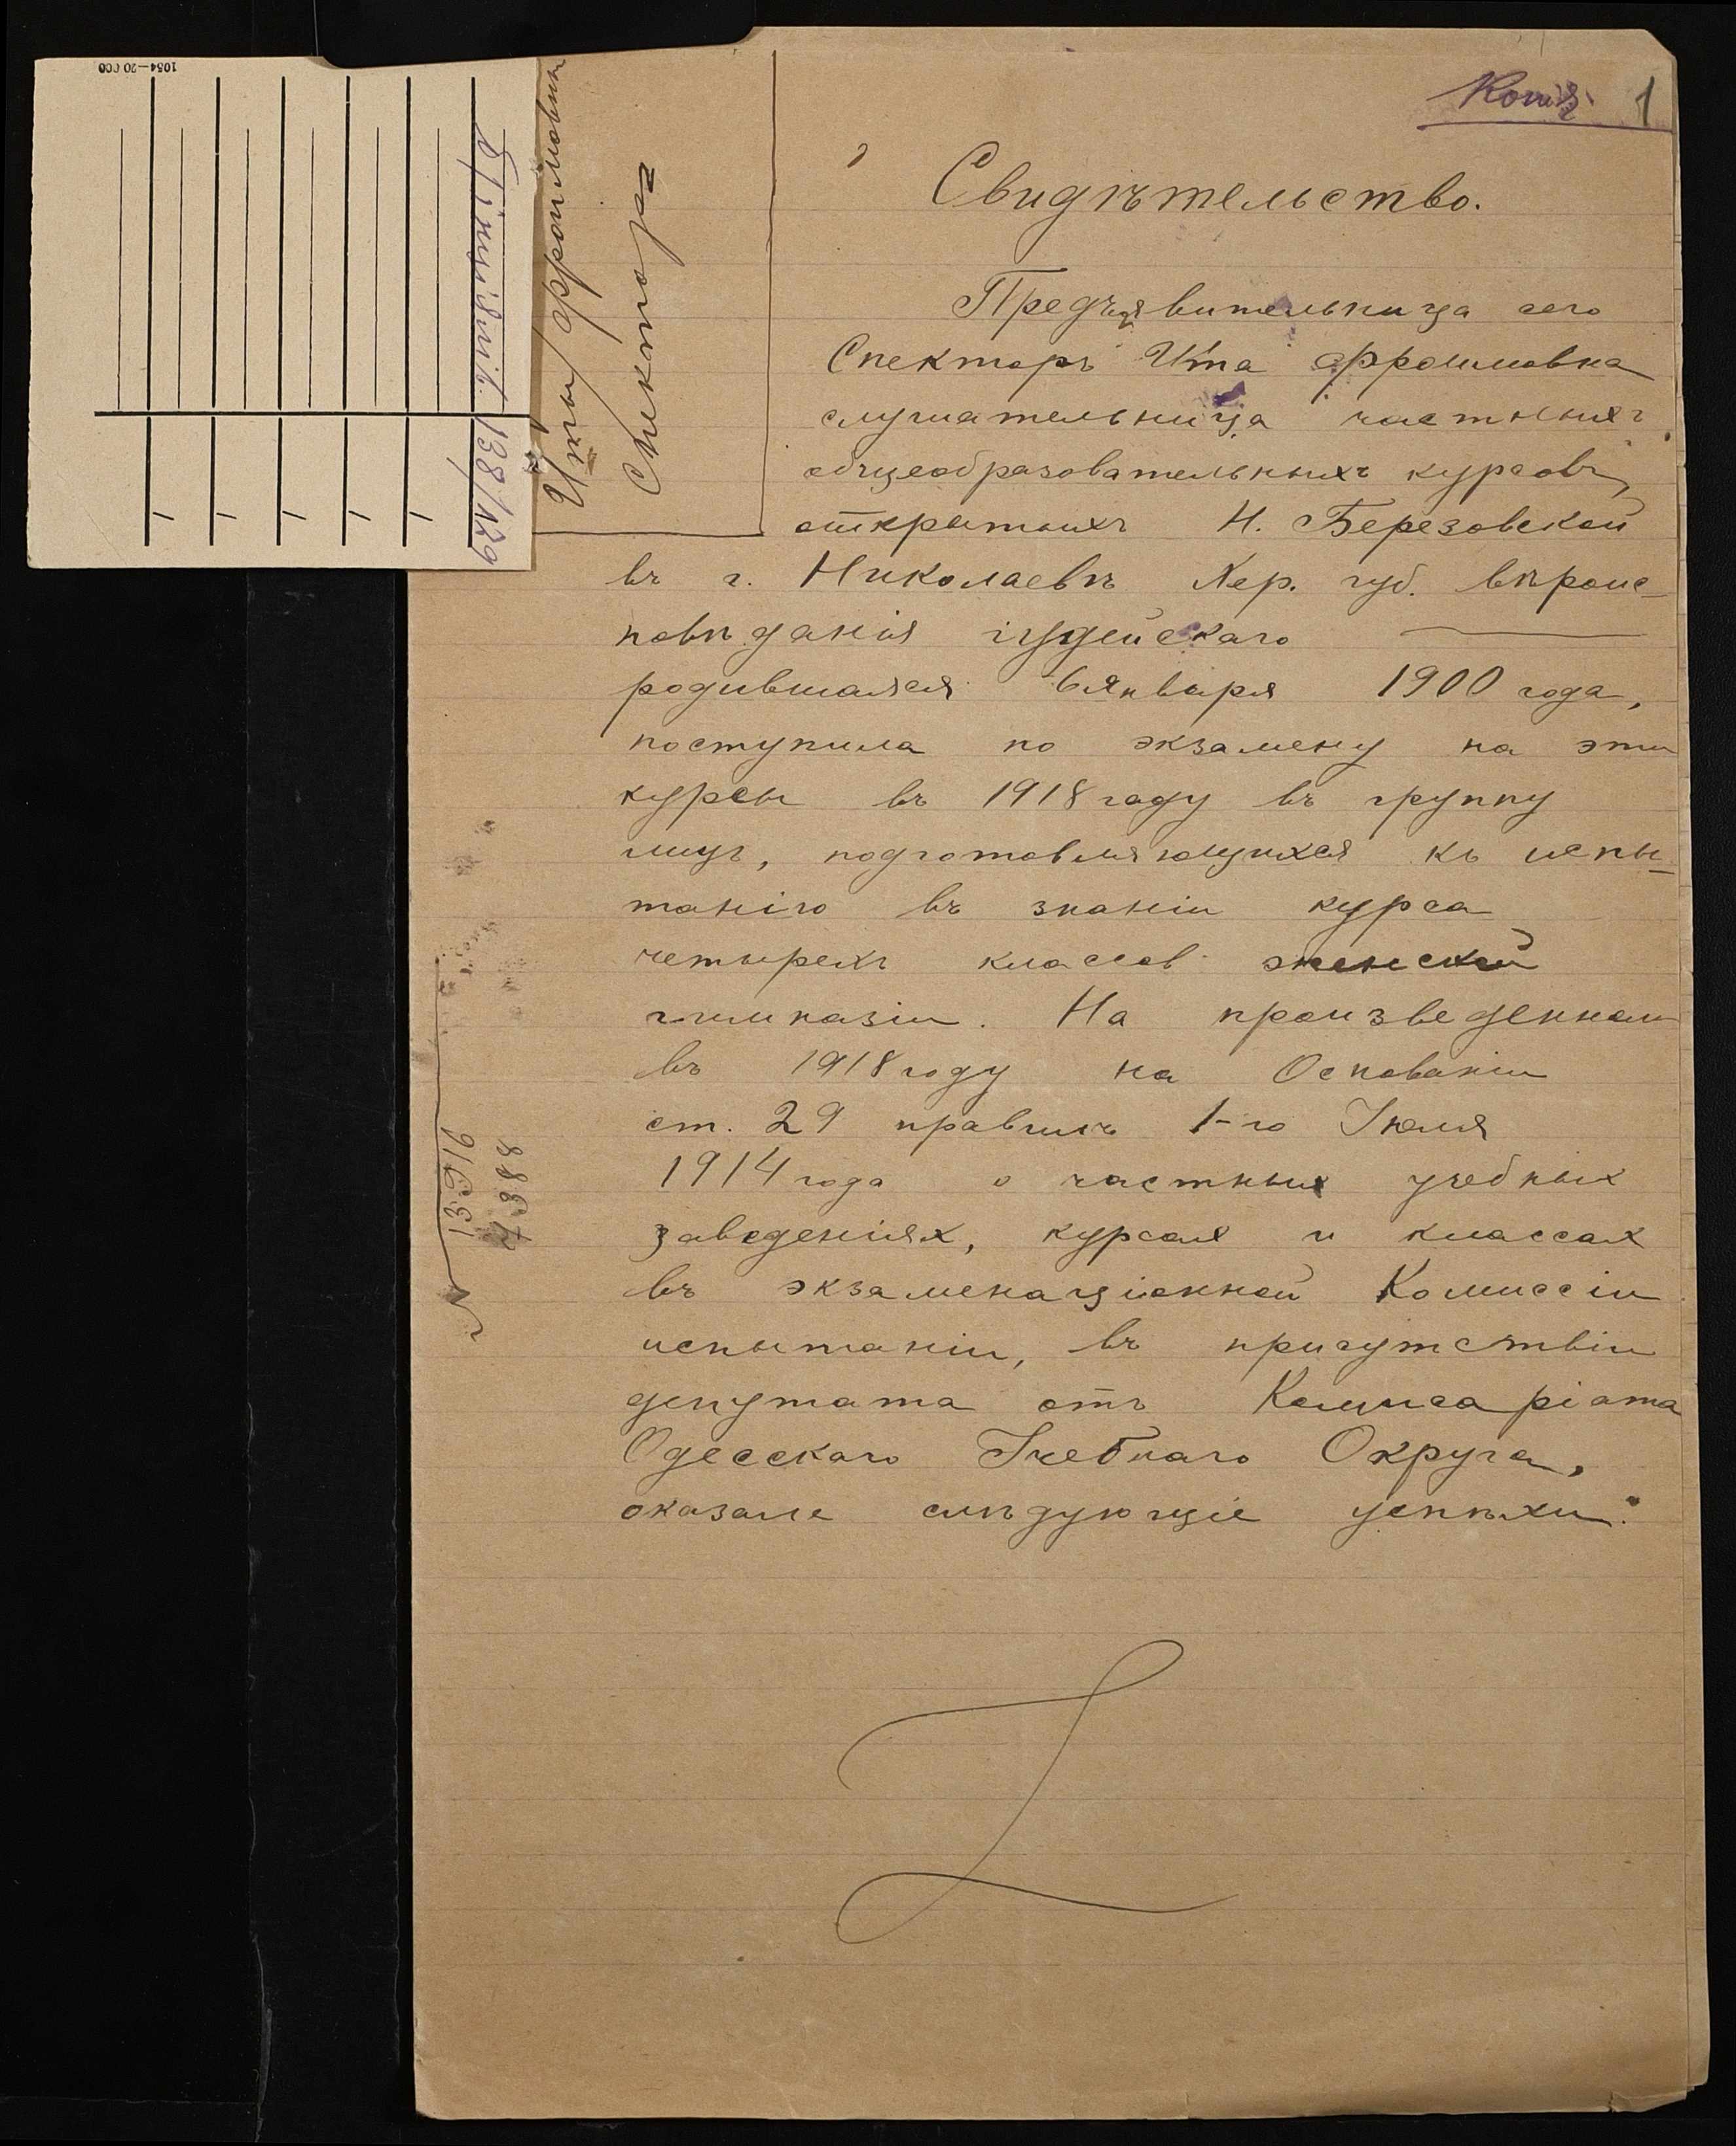 Копія 1
Свидѣтельство.
Предъявительница сего
Спекторъ Ита Фроимовна
слушательница частныхъ
общеобразовательныхъ курсовъ,
открытыхъ Н. Березовской
въ г. Николаевѣ Хер. губ. вѣроис-
повѣданія іудейскаго
родившаяся 6 января 1900 года,
поступила по экзамену на эти
курсы въ 1918 году въ группу
лицъ, подготовляющихся къ испы-
танію въ знаніи курса
четырехъ классов женской
гимназіи. На произведенном
въ 1918 году на Основаніи
ст. 29 правилъ 1-го Іюля
1914 года о частных учебных
заведеніях, курсах и классах
въ экзаменаціонной Комиссіи
испытаніи, въ присутствіи
депутата отъ Комисаріата
Одесскаго Учебнаго Округа,
оказала слѣдующіе успѣхи:
Иты Фроимовны
Спекторъ
138/129
1054—20 000
13916